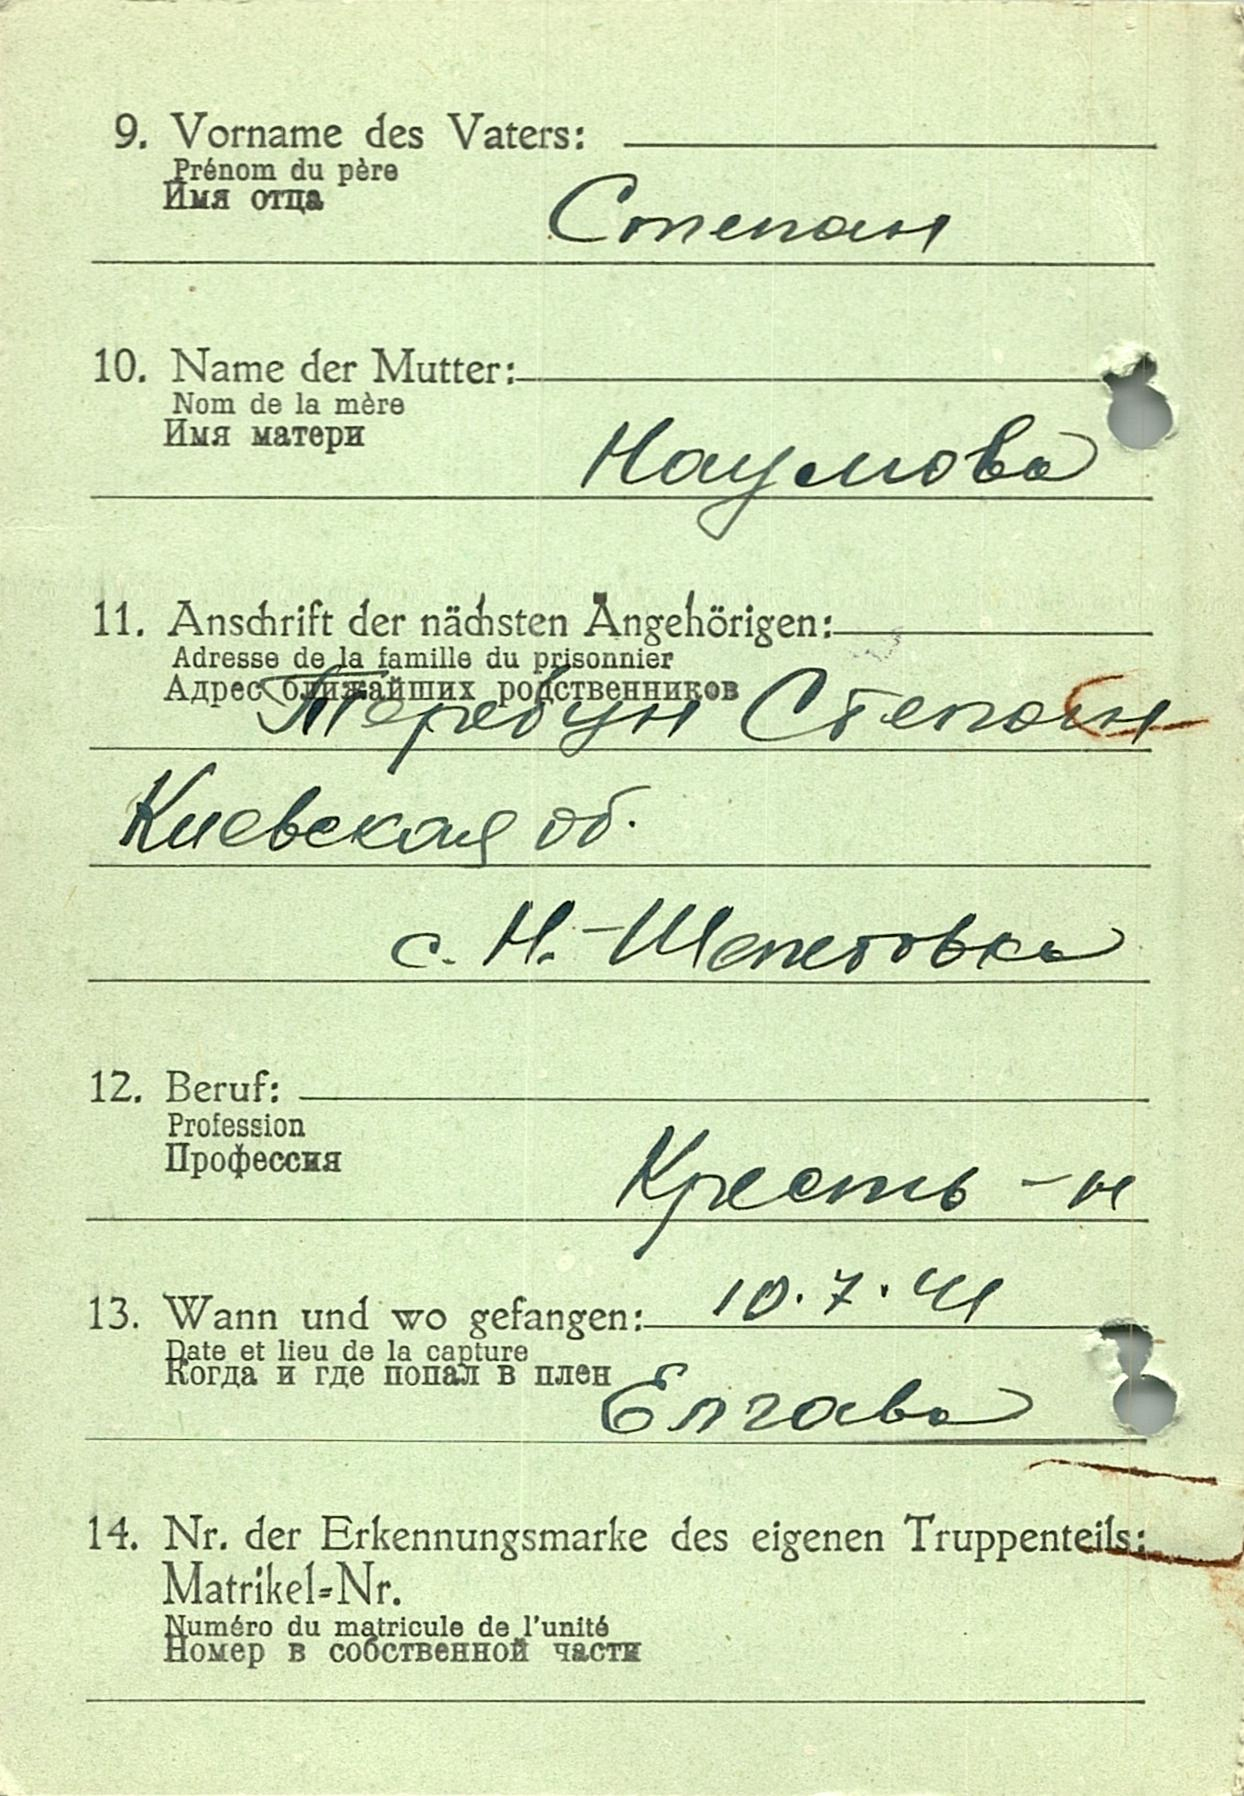 9. Vorname des Vaters:
Prénom du père
Имя отца
Степан
10. Name der Mutter:
Nom de la mère
Имя матери
Наумова
11. Anschrift der nächsten Angehörigen:
Adresse de la famille du prisonnier
Адрес ближайших родственников
Теребун Степан
Киевская об.
с. Н.-Шепетовка
12. Beruf:
Profession
Профессия
Кресть-н
13. Wann und wo gefangen: 10.7.41
Date et lieu de la capture
Когда и где попал в плен
Елгава
14. Nr. der Erkennungsmarke des eigenen Truppenteils:
Matrikel-Nr.
Numéro du matricule de l'unité
Номер в собственной части